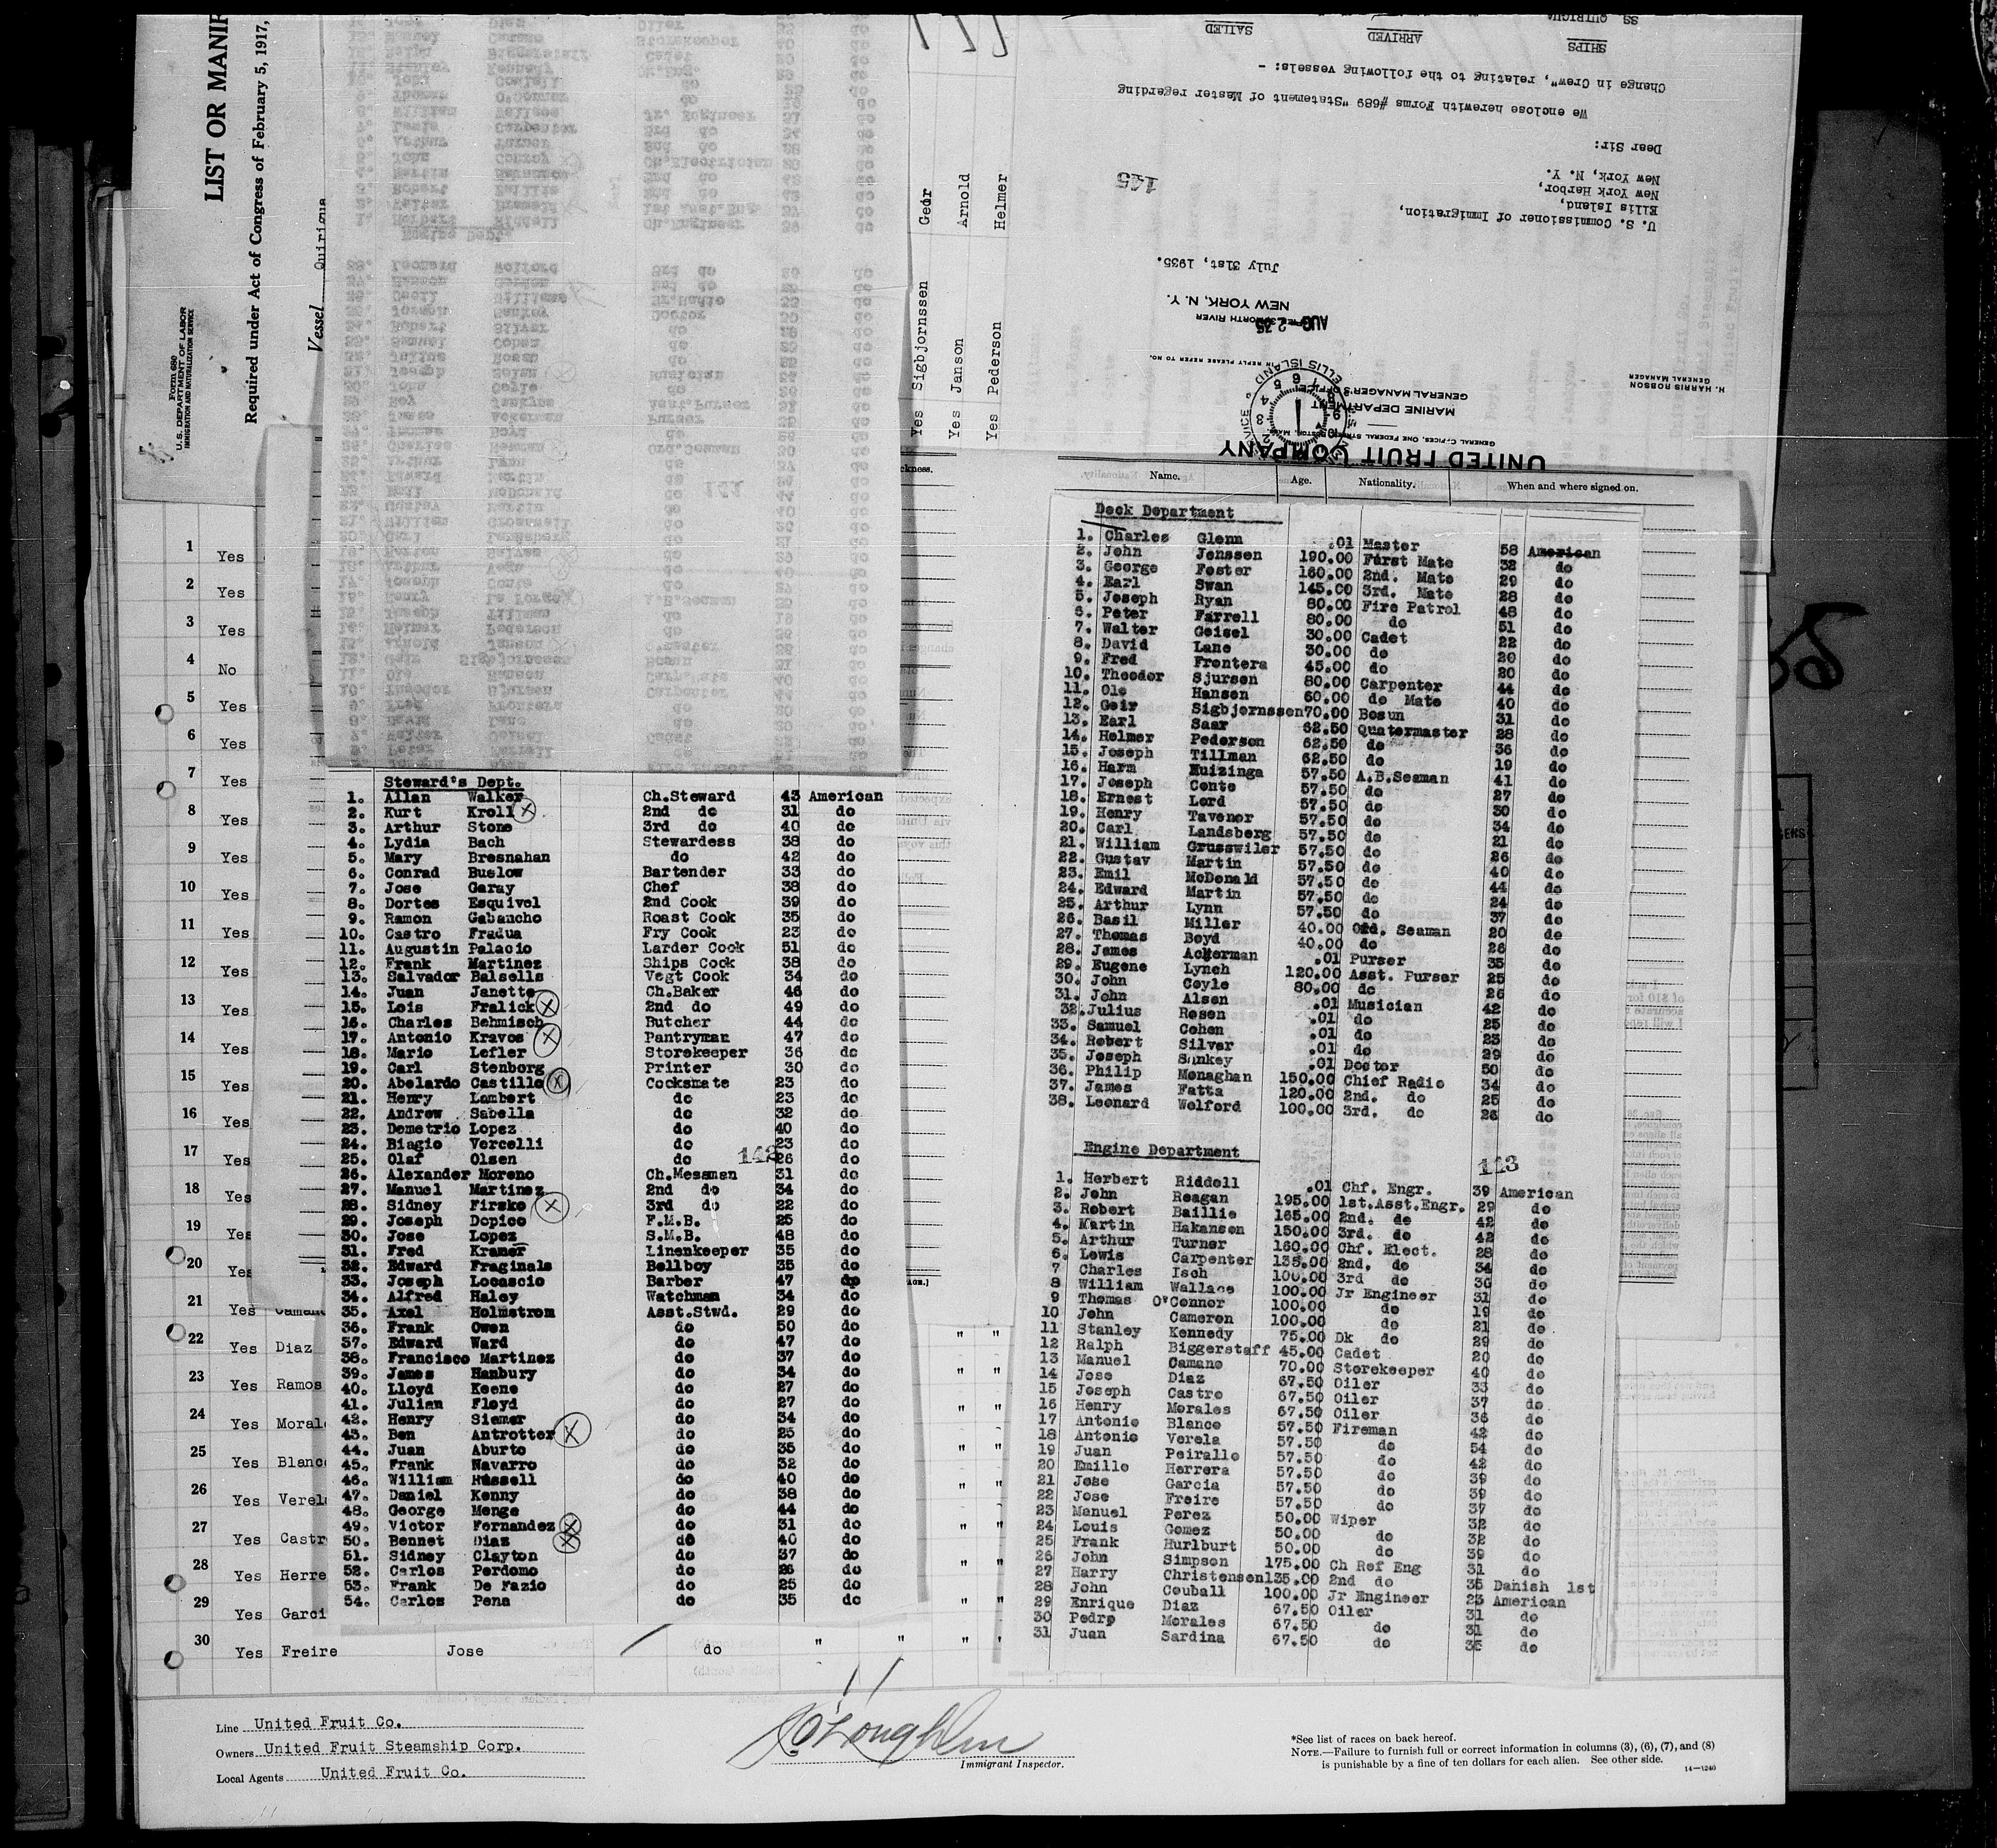 LIST OR MANIF
Required under Act of Congress of February 5, 1917,
Form 680
U.S. DEPARTMENT OF LABOR
IMMIGRATION AND NATURALIZATION SERVICE
Vessel Quirigua
Yes Sigbjornssen Geir
Yes Janson Arnold
Yes Pederson Helmer
UNITED FRUIT COMPANY
GENERAL OFFICES, ONE FEDERAL STREET, BOSTON, MASS.
MARINE DEPARTMENT
GENERAL MANAGER'S OFFICE
H. HARRIS ROBSON
GENERAL MANAGER
IN REPLY PLEASE REFER TO NO.
ELLIS ISLAND
AUG 2 35
NORTH RIVER
NEW YORK, N. Y.
July 31st, 1935.
U. S. Commissioner of Immigration,
Ellis Island,
New York Harbor,
New York, N. Y.
145
Dear Sir:
We enclose herewith Forms #689 "Statement of Master regarding
Change in Crew", relating to the following vessels: -
SHIPS ARRIVED SAILED
SS QUIRIGUA
Name. Age. Nationality. When and where signed on.
Deck Department
1. Charles Glenn .01 Master 58 American
2. John Jenssen 190.00 First Mate 32 do
3. George Foster 160.00 2nd. Mate 29 do
4. Earl Swan 145.00 3rd. Mate 28 do
5. Joseph Ryan 80.00 Fire Patrol 48 do
6. Peter Farrell 80.00 do 51 do
7. Walter Geisel 30.00 Cadet 22 do
8. David Lane 30.00 do 20 do
9. Fred Frontera 45.00 do 20 do
10. Theodor Sjursen 80.00 Carpenter 44 do
11. Ole Hansen 60.00 do Mate 40 do
12. Geir Sigbjornssen 70.00 Bosun 31 do
13. Earl Saar 62.50 Quatermaster 28 do
14. Helmer Pederson 62.50 do 36 do
15. Joseph Tillman 62.50 do 19 do
16. Harm Huizinga 57.50 A.B.Seaman 41 do
17. Joseph Conte 57.50 do 27 do
18. Ernest Lord 57.50 do 30 do
19. Henry Tavenor 57.50 do 34 do
20. Carl Landsberg 57.50 do 21 do
21. William Grusswiler 57.50 do 26 do
22. Gustav Martin 57.50 do 40 do
23. Emil McDonald 57.50 do 44 do
24. Edward Martin 57.50 do 24 do
25. Arthur Lynn 57.50 do 37 do
26. Basil Miller 40.00 Ord. Seaman 20 do
27. Thomas Boyd 40.00 do 26 do
28. James Ackerman .01 Purser 35 do
29. Eugene Lynch 120.00 Asst. Purser 25 do
30. John Coyle 80.00 do 26 do
31. John Alsen .01 Musician 42 do
32. Julius Rosen .01 do 25 do
33. Samuel Cohen .01 do 23 do
34. Robert Silver .01 do 29 do
35. Joseph Sankey .01 Doctor 50 do
36. Philip Monaghan 150.00 Chief Radio 34 do
37. James Fatta 120.00 2nd. do 25 do
38. Leonard Welford 100.00 3rd. do 26 do
Engine Department
143
1. Herbert Riddell .01 Chf. Engr. 39 American
2. John Reagan 195.00 1st.Asst.Engr. 29 do
3. Robert Baillie 165.00 2nd. do 42 do
4. Martin Hakansen 150.00 3rd. do 42 do
5. Arthur Turner 160.00 Chf. Elect. 28 do
6. Lewis Carpenter 135.00 2nd. do 34 do
7 Charles Isch 100.00 3rd do 30 do
8 William Wallace 100.00 Jr Engineer 31 do
9 Thomas O'Connor 100.00 do 19 do
10 John Cameron 100.00 do 21 do
11 Stanley Kennedy 75.00 Dk do 29 do
12 Ralph Biggerstaff 45.00 Cadet 20 do
13 Manuel Camano 70.00 Storekeeper 40 do
14 Jose Diaz 67.50 Oiler 33 do
15 Joseph Castro 67.50 Oiler 37 do
16 Henry Morales 67.50 Oiler 36 do
17 Antonio Blanco 57.50 Fireman 42 do
18 Antonio Verela 57.50 do 54 do
19 Juan Peirallo 57.50 do 42 do
20 Emillo Herrera 57.50 do 39 do
21 Jose Garcia 57.50 do 39 do
22 Jose Freire 57.50 do 37 do
23 Manuel Perez 50.00 Wiper 32 do
24 Louis Gomez 50.00 do 32 do
25 Frank Hurlburt 50.00 do 39 do
26 John Simpson 175.00 Ch Ref Eng 31 do
27 Harry Christensen 135.00 2nd do 35 Danish 1st
28 John Couball 100.00 Jr Engineer 23 American
29 Enrique Diaz 67.50 Oiler 31 do
30 Pedro Morales 67.50 do 31 do
31 Juan Sardina 67.50 do 35 do
Steward's Dept.
1. Allan Walker Ch.Steward 43 American
2. Kurt Kroll 2nd do 31 do
3. Arthur Stone 3rd do 40 do
4. Lydia Bach Stewardess 38 do
5. Mary Bresnahan do 42 do
6. Conrad Buslow Bartender 33 do
7. Jose Garay Chef 38 do
8. Dortes Esquivel 2nd Cook 39 do
9. Ramon Gabancho Roast Cook 35 do
10. Castro Fradua Fry Cook 23 do
11. Augustin Palacio Larder Cook 51 do
12. Frank Martinez Ships Cook 38 do
13. Salvador Balsells Vegt Cook 34 do
14. Juan Janette Ch.Baker 46 do
15. Lois Fralick 2nd do 49 do
16. Charles Behmisch Butcher 44 do
17. Antonio Kravos Pantryman 47 do
18. Mario Lefler Storekeeper 36 do
19. Carl Stenborg Printer 30 do
20. Abelardo Castillo Cooksmate 23 do
21. Henry Lambert do 23 do
22. Andrew Sabella do 32 do
23. Demetrio Lopez do 40 do
24. Biagio Vercelli do 23 do
25. Olaf Olsen do 26 do
142
26. Alexander Moreno Ch.Messman 31 do
27. Manuel Martinez 2nd do 34 do
28. Sidney Firske 3rd do 22 do
29. Joseph Dopico F.M.B. 25 do
30. Jose Lopez S.M.B. 48 do
31. Fred Kramer Linenkeeper 35 do
32. Edward Fraginals Bellboy 35 do
33. Joseph Locascio Barber 47 do
34. Alfred Haley Watchman 34 do
35. Axel Holmstrom Asst.Stwd. 29 do
36. Frank Owen do 50 do
37. Edward Ward do 47 do
38. Francisco Martinez do 37 do
39. James Hanbury do 34 do
40. Lloyd Keene do 27 do
41. Julian Floyd do 27 do
42. Henry Siemer do 34 do
43. Ben Antrotter do 25 do
44. Juan Aburto do 35 do
45. Frank Navarro do 32 do
46. William Russell do 40 do
47. Daniel Kenny do 38 do
48. George Menge do 44 do
49. Victor Fernandez do 31 do
50. Bennet Diaz do 40 do
51. Sidney Clayton do 37 do
52. Carlos Perdomo do 26 do
53. Frank De Fazio do 25 do
54. Carlos Pena do 35 do
1 Yes
2 Yes
3 Yes
4 No
5 Yes
6 Yes
7 Yes
8 Yes
9 Yes
10 Yes
11 Yes
12 Yes
13 Yes
14 Yes
15 Yes
16 Yes
17 Yes
18 Yes
19 Yes
20 Yes
21 Yes Camano
22 Yes Diaz " "
23 Yes Ramos " "
24 Yes Moral " "
25 Yes Blanco " "
26 Yes Verel " "
27 Yes Castr " "
28 Yes Herre " "
29 Yes Garci " "
30 Yes Freire Jose do " " " "
Line United Fruit Co.
Owners United Fruit Steamship Corp.
Local Agents United Fruit Co.
O'Loughlin
Immigrant Inspector.
*See list of races on back hereof.
NOTE.—Failure to furnish full or correct information in columns (3), (6), (7), and (8)
is punishable by a fine of ten dollars for each alien. See other side.
14—1240